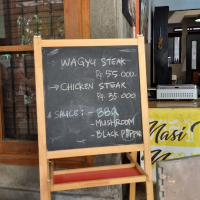 WAGYU STEAK
Rp. 55.000
→ CHICKEN STEAK
Rp. 35.000
SAUCE : - BBQ
- MUSHROOM
- BLACK PEPPER
Nasi